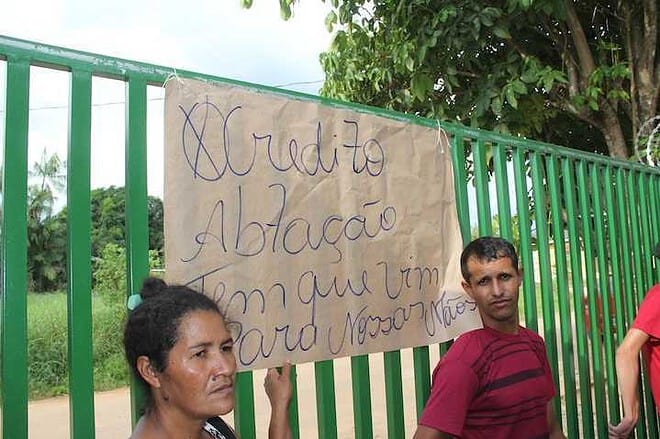 O Credito
Abtação
Tem que vim
Para Nossas Mãos